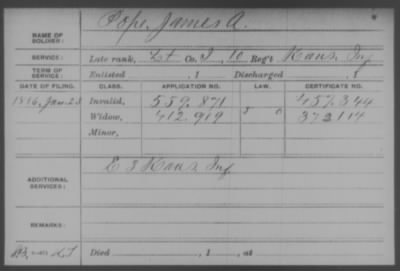 Pope, James A.
NAME OF SOLDIER:
SERVICE: Late rank, Lt Co. I, 10 Reg't Kans. Inf
TERM OF SERVICE: Enlisted , 1 Discharged , 1
DATE OF FILING. CLASS. APPLICATION NO. LAW. CERTIFICATE NO.
Invalid, 559.871 457.344
Widow, 412.919 372114
Minor,
E 3 Kans. Inf
ADDITIONAL SERVICES:
REMARKS:
Died , 1 , at